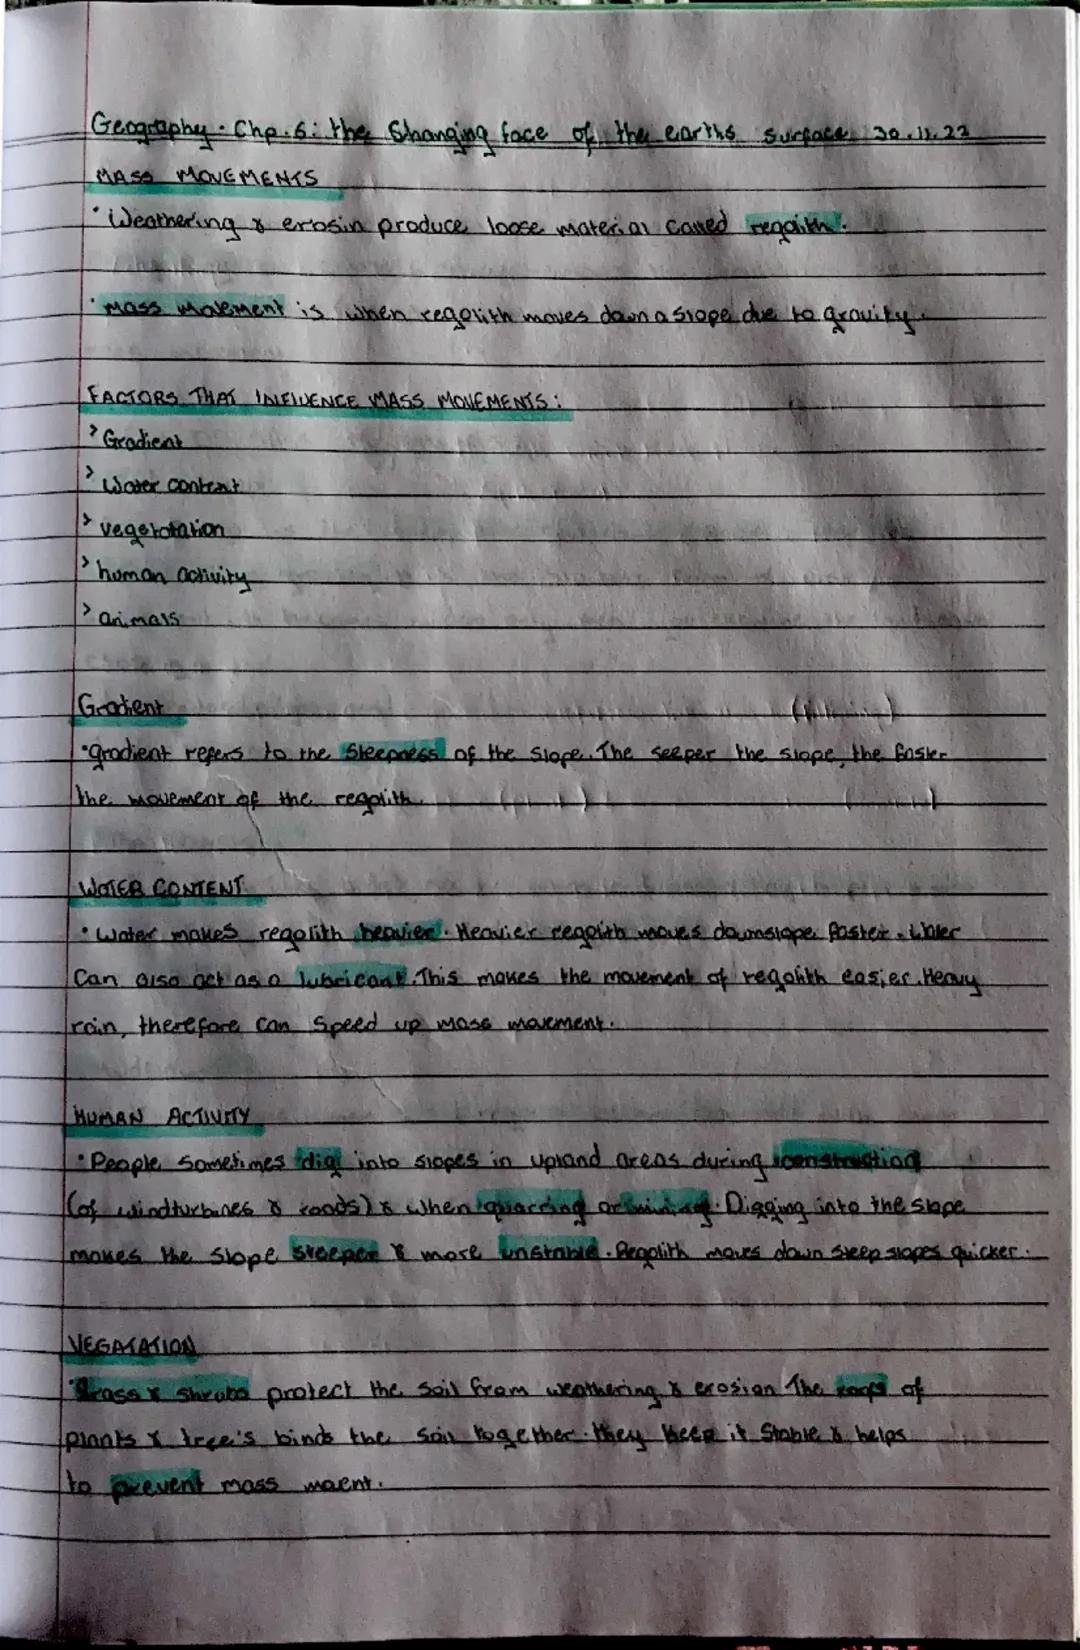 Geography. Chp.6: the Changing face of the earths surface 30.11.22
MASS MOVEMENTS
• Weathering & erosin produce loose material called regolith.
• Mass movement is when regolith moves down a slope due to gravity.
FACTORS THAT INFLUENCE MASS MOVEMENTS:
> Gradient
> Water content
> vegetotation
> human activity
> animals
Gradient
• gradient refers to the steepness of the slope. The seeper the slope, the faster
the movement of the regolith.
WATER CONTENT
• Water makes regolith heavier. Heavier regolith moves downslope faster. Water
can also act as a lubricant. This makes the movement of regolith easier. Heavy
rain, therefore can speed up mass movement.
HUMAN ACTIVITY
• People sometimes dig into slopes in upland areas during construction
(of windturbines & roads) & when quarring or mining. Digging into the slope
makes the slope steeper & more unstable. Regolith moves down steep slopes quicker.
VEGATATION
• Grass & shrubs protect the soil from weathering & erosion The roots of
plants & tree's binds the soil together. they keep it stable & helps
to prevent mass movent.